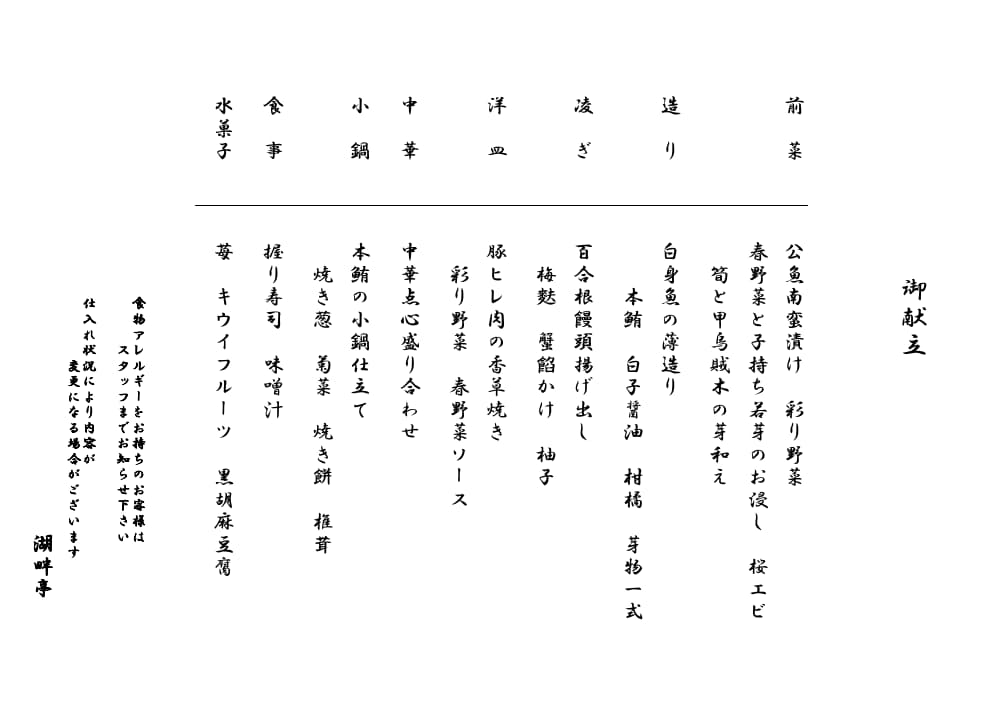 御献立
前菜
公魚南蛮漬け 彩り野菜
春野菜と子持ち若芽のお浸し 桜エビ
筍と甲烏賊木の芽和え
造り
白身魚の薄造り
本鮪 白子醤油 柑橘 芽物一式
凌ぎ
百合根饅頭揚げ出し
梅麩 蟹餡かけ 柚子
洋皿
豚ヒレ肉の香草焼き
彩り野菜 春野菜ソース
中華
中華点心盛り合わせ
小鍋
本鮪の小鍋仕立て
焼き葱 菊菜 焼き餅 椎茸
食事
握り寿司 味噌汁
水菓子
苺 キウイフルーツ 黒胡麻豆腐
食物アレルギーをお持ちのお客様は
スタッフまでお知らせ下さい
仕入れ状況により内容が
変更になる場合がございます
湖畔亭